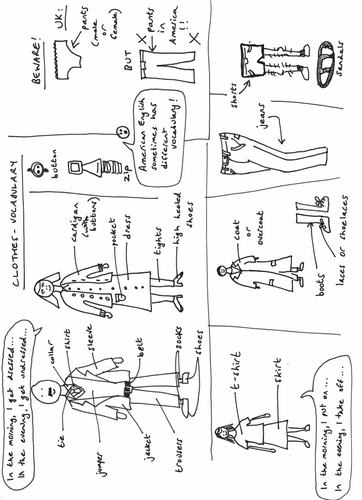 CLOTHES - VOCABULARY
In the morning, I get dressed...
In the evening, I get undressed...
collar
shirt
sleeve
belt
socks
shoes
tie
jumper
jacket
trousers
cardigan
(with
buttons)
pocket
dress
tights
high heeled
shoes
button
zip
American English
sometimes has
different
vocabulary!
BEWARE!
UK:
pants
(male
or
female)
BUT
X pants X
in
America
!!
t-shirt
skirt
In the morning, I put on...
In the evening, I take off...
coat
or
overcoat
boots
laces or shoelaces
jeans
shorts
sandals